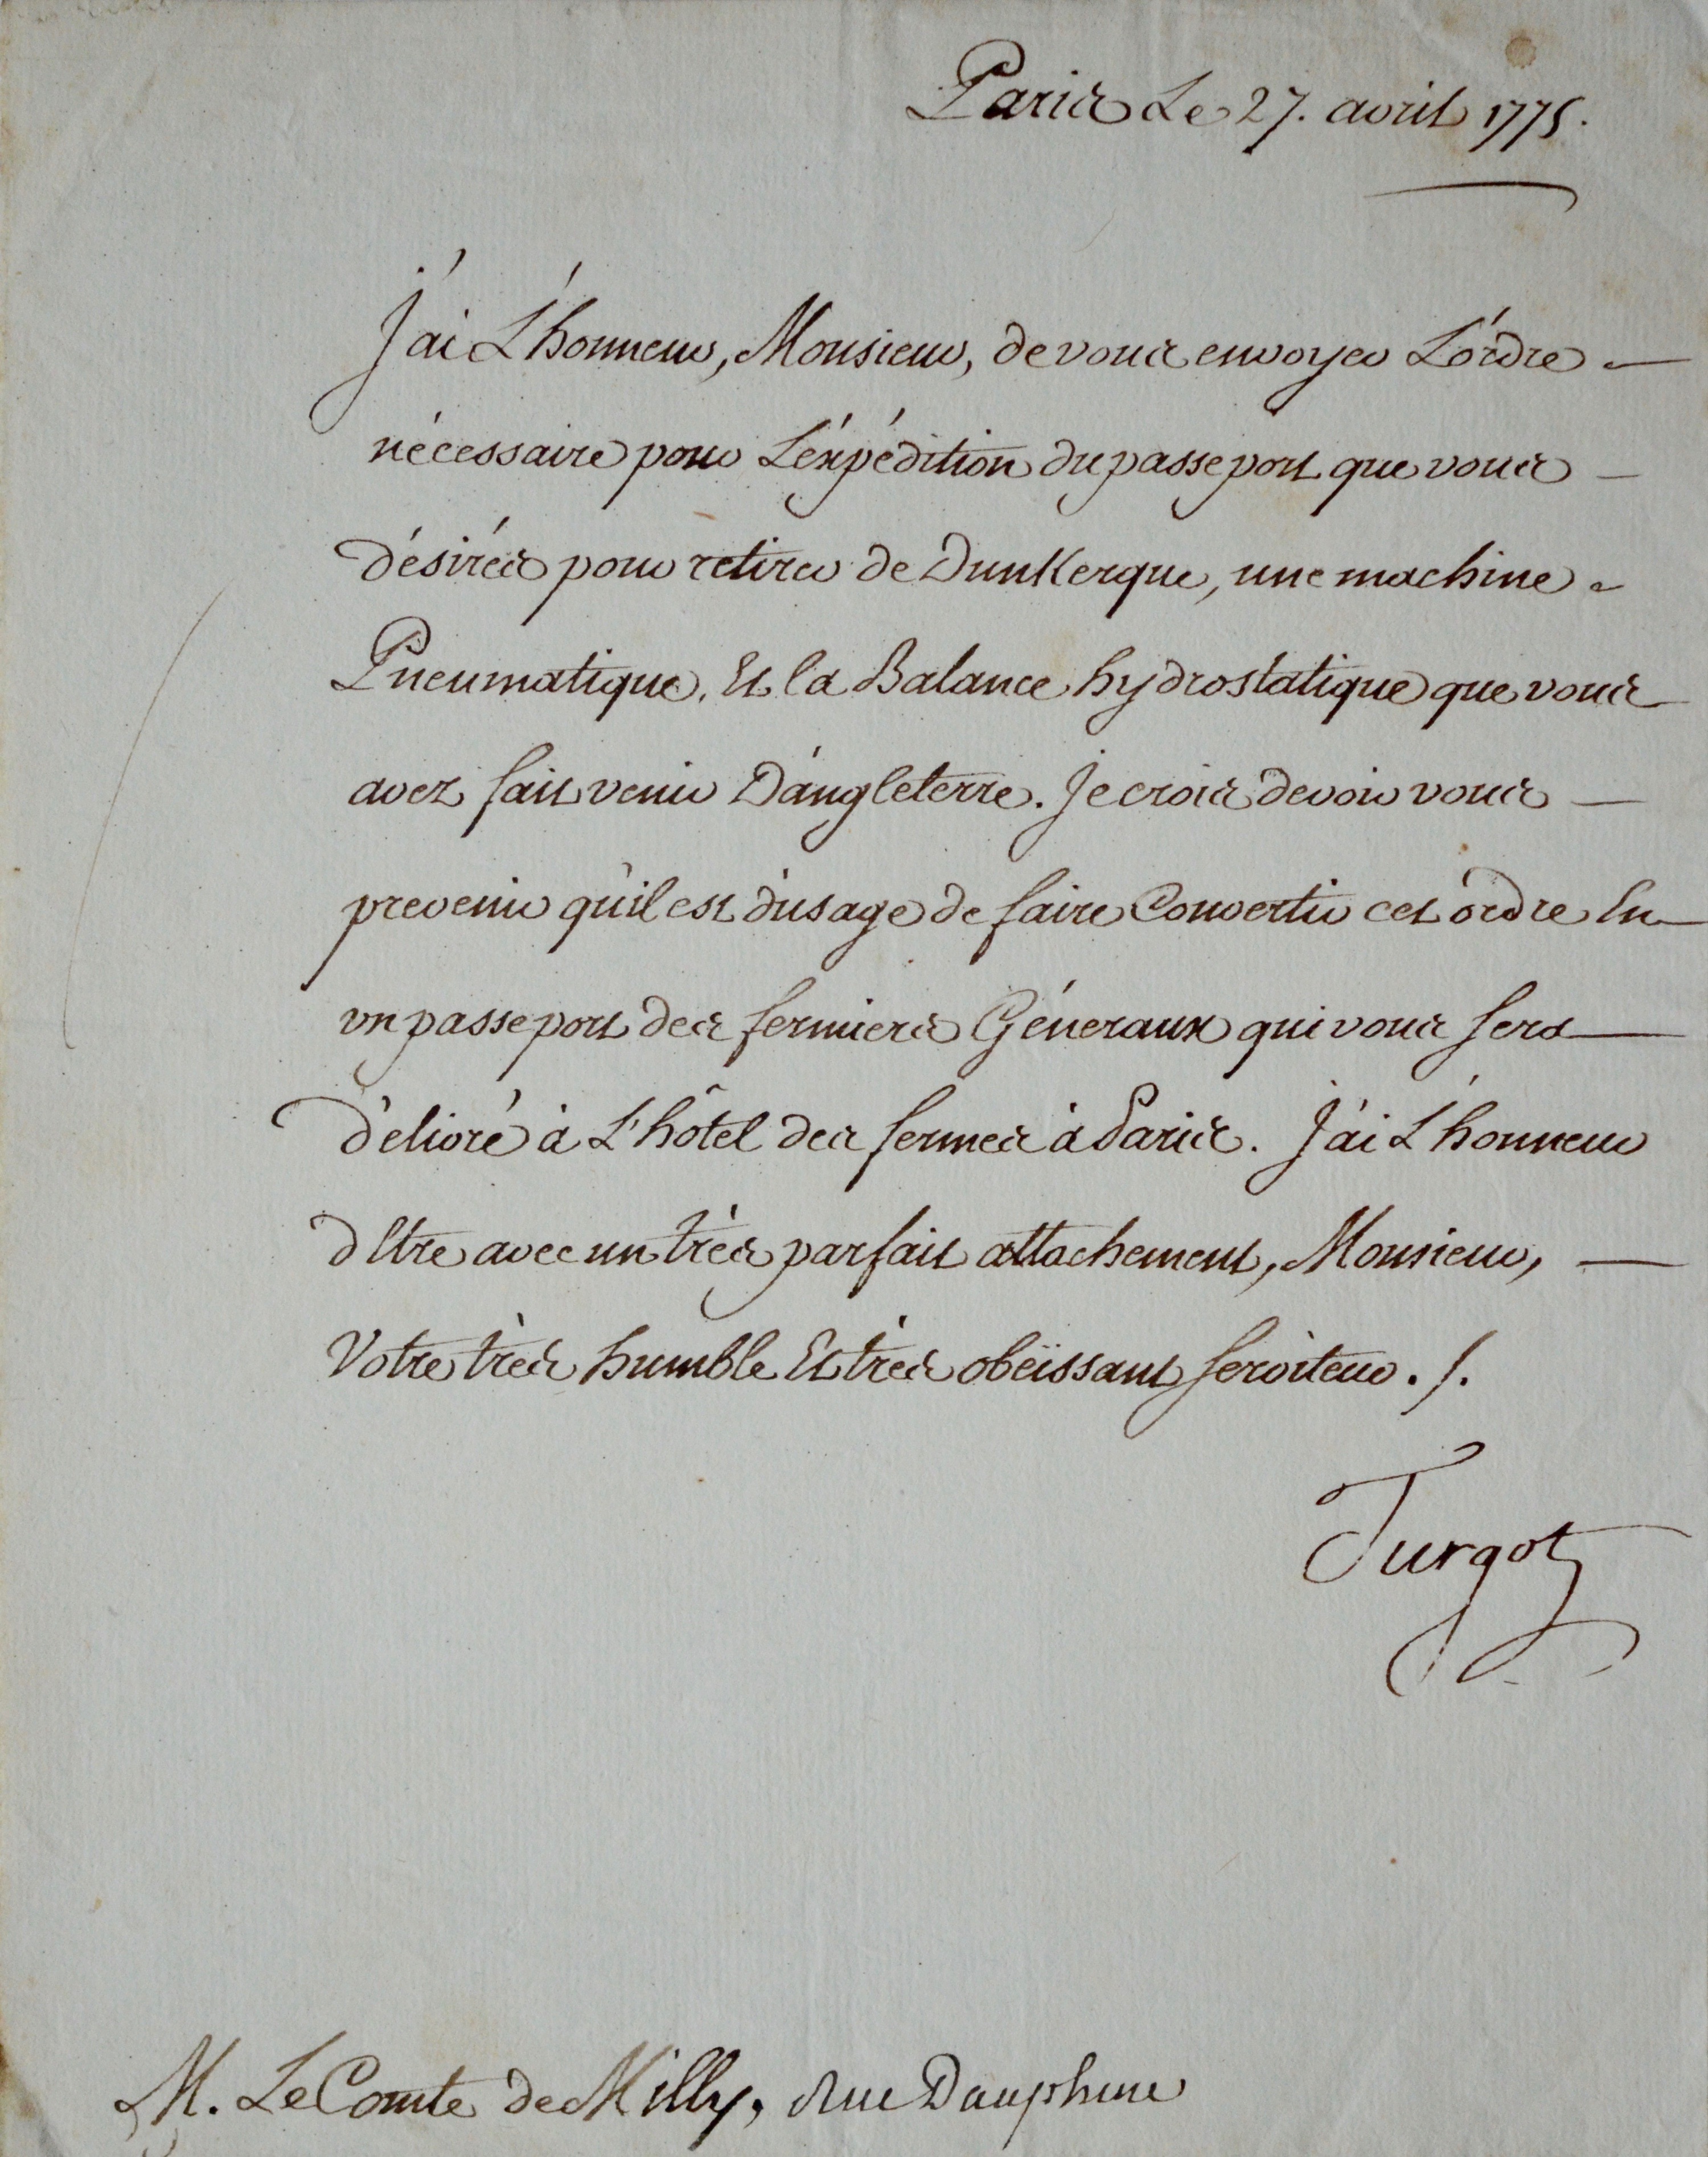 Paris Le 27. avril 1775.
J'ai L'honneur, Monsieur, de vous envoyer L'ordre
nécessaire pour L'éxpédition du passeport que vous
désirés pour retirer de Dunkerque, une machine
Pneumatique, Et la Balance hydrostatique que vous
avez fait venir D'angleterre. Je crois devoir vous
prevenir qu'il est d'usage de faire Convertir cet ordre En
un passeport des fermiers Géneraux qui vous sera
délivré à L'hôtel des fermes à Paris. J'ai L'honneur
d'Etre avec un très parfait attachement, Monsieur,
Votre très humble Et très obéissant serviteur. /.
Turgot
M. Le Comte de Milly, rue Dauphine